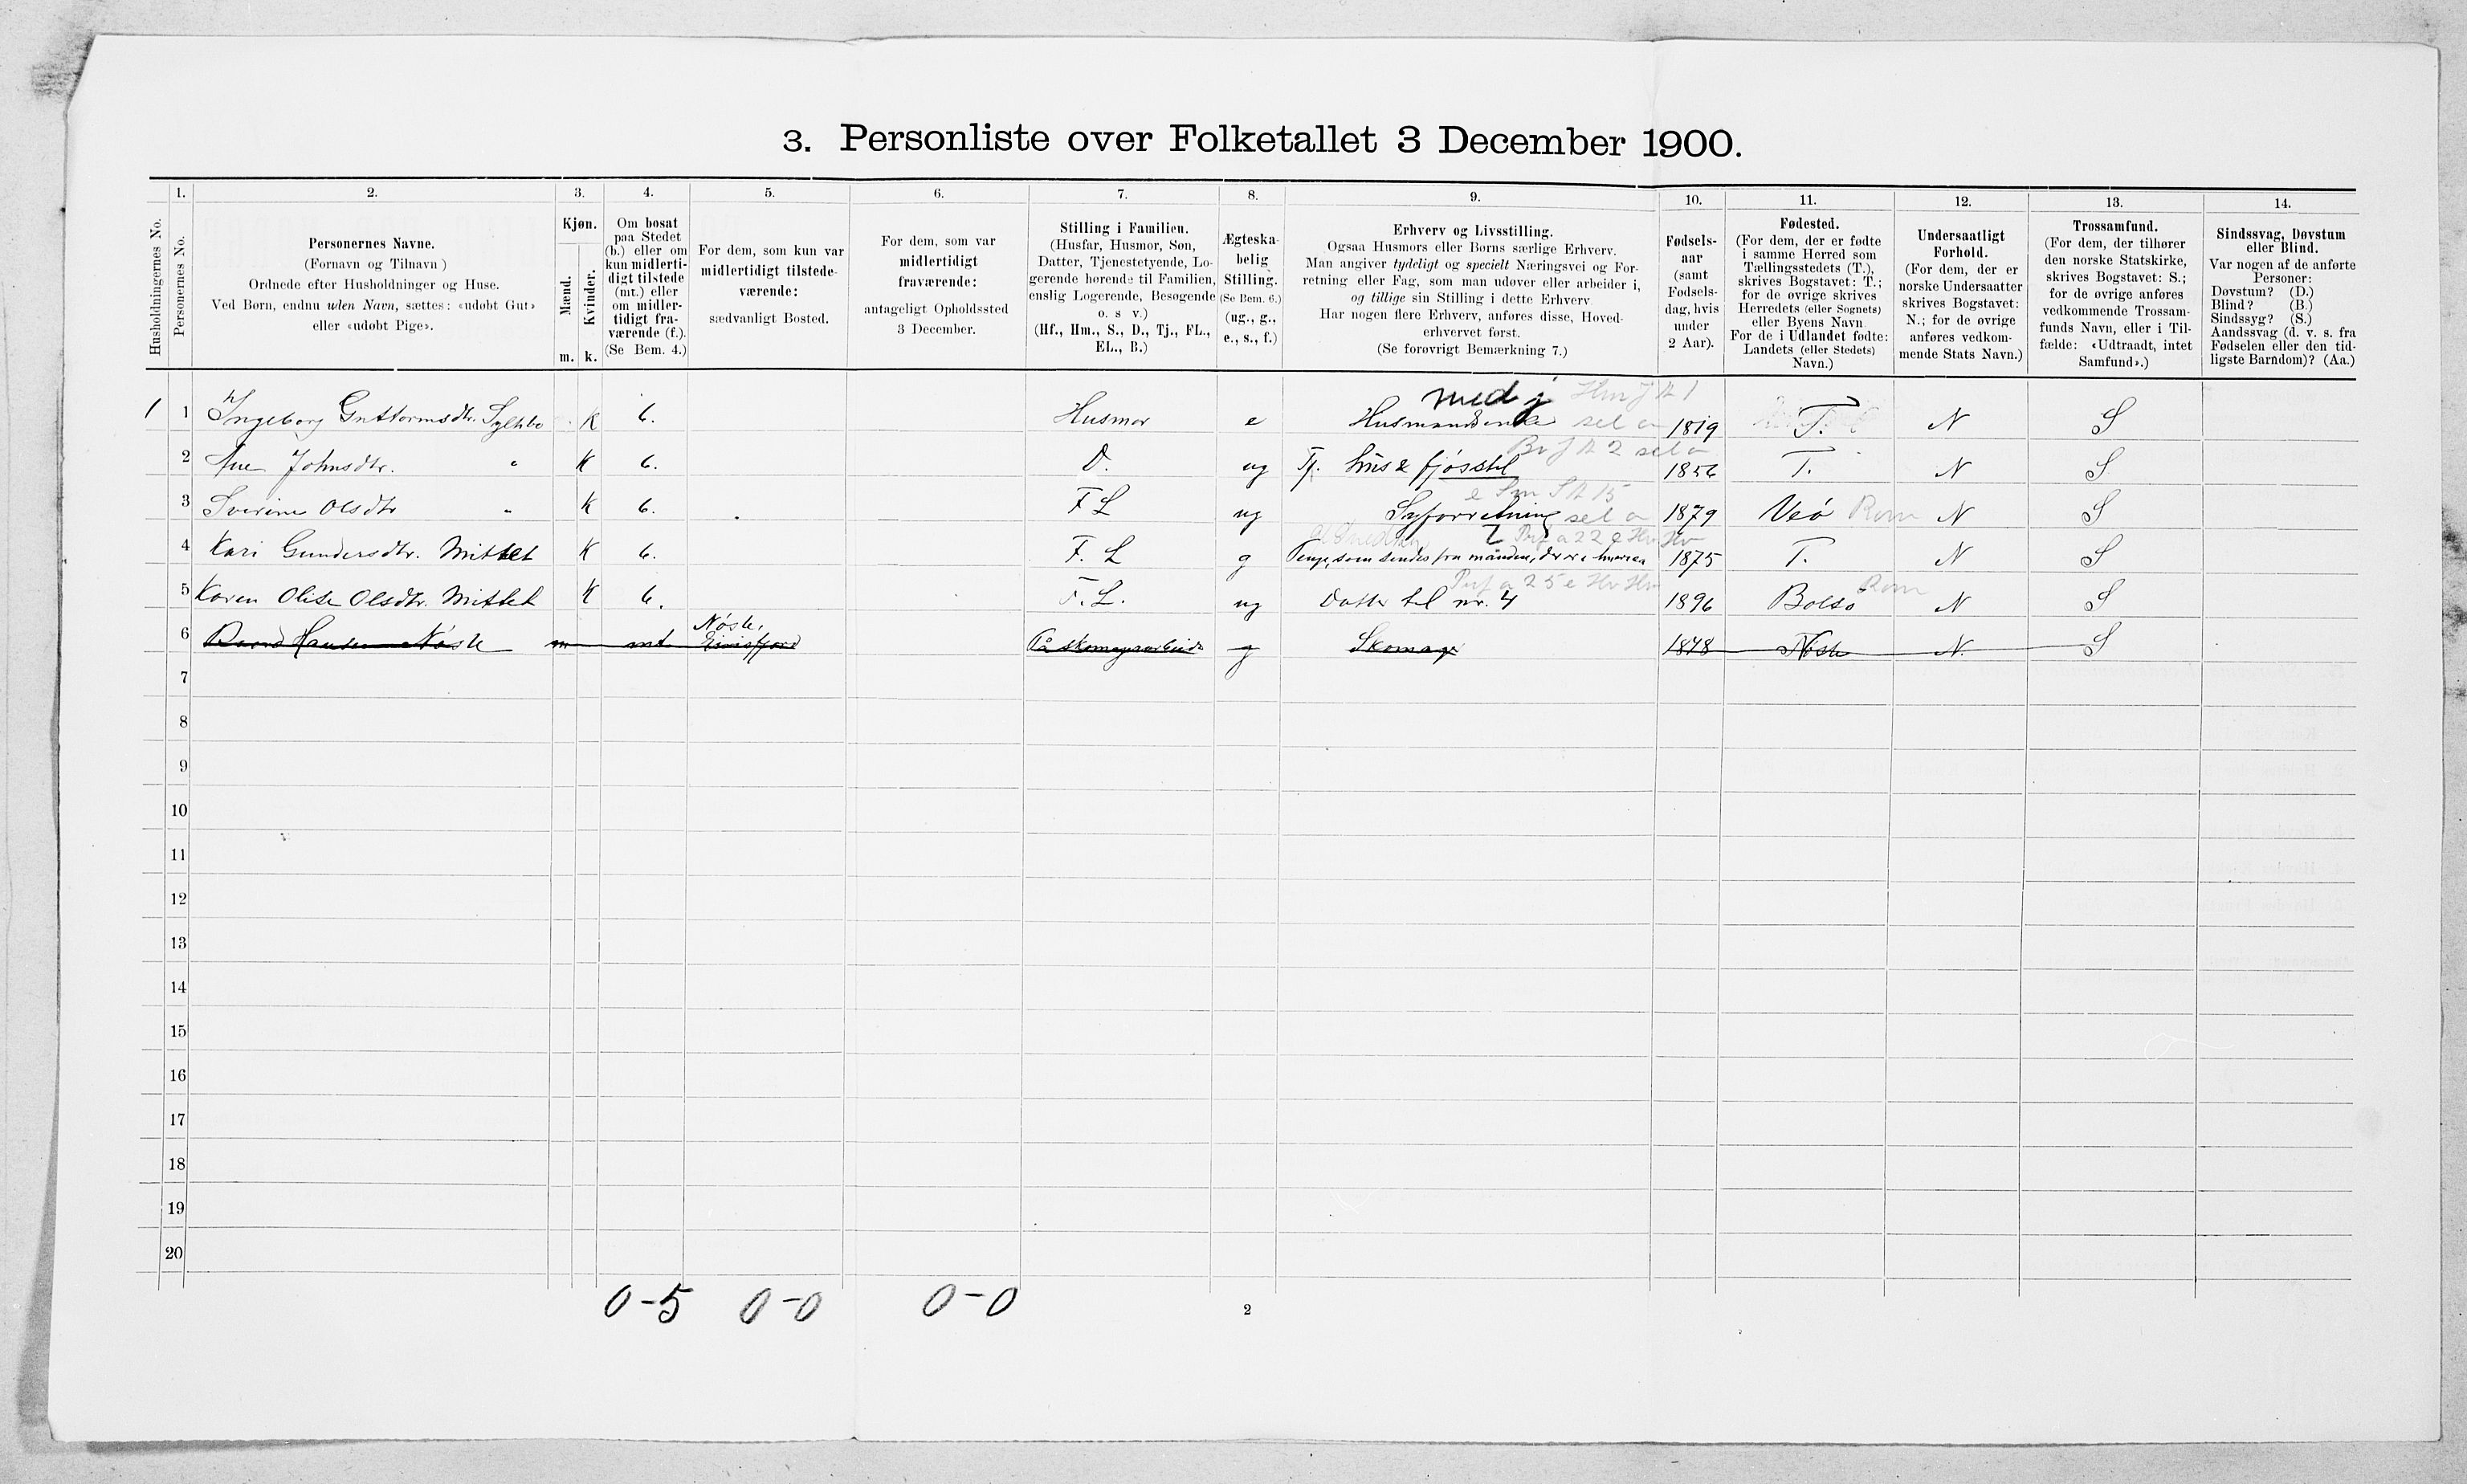 3. Personliste over Folketallet 3 December 1900.
1. 2. 3. 4. 5. 6. 7. 8. 9. 10. 11. 12. 13. 14.
Husholdningernes No.
Personernes No.
Personernes Navne.
(Fornavn og Tilnavn )
Ordnede efter Husholdninger og Huse.
Ved Børn, endnu uden Navn, sættes: «udøbt Gut»
eller «udøbt Pige».
Kjøn.
Mænd.
Kvinder.
m. k.
Om bosat
paa Stedet
(b.) eller om
kun midlerti-
digt tilstede
(mt.) eller
om midler-
tidigt fra-
værende (f.).
(Se Bem. 4.)
For dem, som kun var
midlertidigt tilstede-
værende:
sædvanligt Bosted.
For dem, som var
midlertidigt
fraværende:
antageligt Opholdssted
3 December.
Stilling i Familien.
(Husfar, Husmor, Søn,
Datter, Tjenestetyende, Lo-
gerende hørende til Familien,
enslig Logerende, Besøgende
o. s v.)
(Hf., Hm., S., D., Tj., FL.,
EL., B.)
Ægteska-
belig
Stilling.
(Se Bem. 6.)
(ug., g.,
e., s., f.)
Erhverv og Livsstilling.
Ogsaa Husmors eller Børns særlige Erhverv.
Man angiver tydeligt og specielt Næringsvei og For-
retning eller Fag, som man udøver eller arbeider i,
og tillige sin Stilling i dette Erhverv
Har nogen flere Erhverv, anføres disse, Hoved-
erhvervet først.
(Se forøvrigt Bemærkning 7.)
Fødsels-
aar
(samt
Fødsels-
dag, hvis
under
2 Aar).
Fødested.
(For dem, der er fødte
i samme Herred som
Tællingsstedets (T.),
skrives Bogstavet: T.;
for de øvrige skrives
Herredets (eller Sognets)
eller Byens Navn
For de i Udlandet fødte:
Landets (eller Stedets)
Navn.)
Undersaatligt
Forhold.
(For dem, der er
norske Undersaatter
skrives Bogstavet:
N.; for de øvrige
anføres vedkom-
mende Stats Navn.)
Trossamfund.
(For dem, der tilhører
den norske Statskirke,
skrives Bogstavet: S.;
for de øvrige anføres
vedkommende Trossam-
funds Navn, eller i Til-
fælde: «Udtraadt, intet
Samfund».)
Sindssvag, Døvstum
eller Blind.
Var nogen af de anførte
Personer:
Døvstum? (D.)
Blind? (B.)
Sindssyg? (S.)
Aandssvag (d. v. s. fra
Fødselen eller den tid-
ligste Barndom)? (Aa.)
med j
1 1 Ingeborg Guttormsdtr. Syltebo K b. Husmor e sel a 1819 T. N S
2 Ane Johnsdtr. " K b. D. ug Tj. hus & fjøsstel 1856 T. N S
3 Sverine Olsdtr " K b. F L ug Syforretning sel a 1879 Veø Rom N S
4 Kari Gundersdtr. Mittet K b. F. L g Penge, som sendes fra manden, der er i 1875 T. N S
5 Karen Olise Olsdtr. Mittet K b. F. L. ug Datter til nr. 4 1896 Bolsø Rom N S
Nøste,
6 Hansen Nøste m mt. På skomagerarbeide g Skomager 1878 Nøste N. S
7
8
9
10
11
12
13
14
15
16
17
18
19
20
0-5 0-0 0-0
2